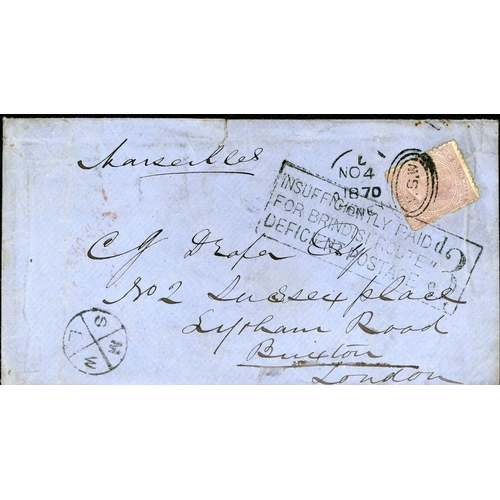 Marseilles
L
NO 4
1870
N.S.W
INSUFFICIENTLY PAID
FOR BRINDISI ROUTE
DEFICIENT POSTAGE
d
3
C J Draper Esq
No 2 Sussex place
Lypham Road
Brixton
London
S M
L W